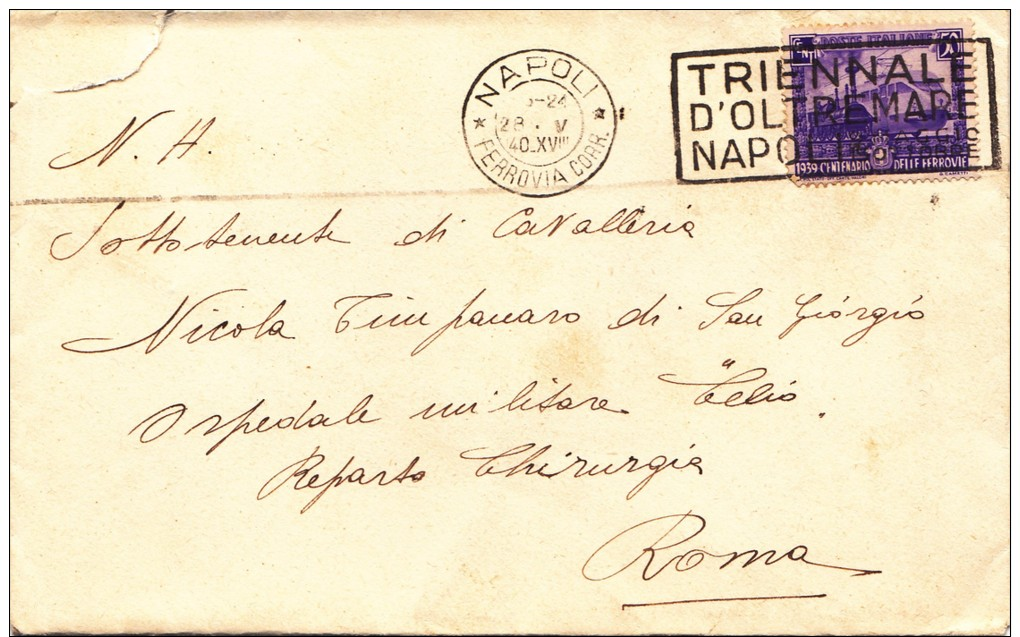 POSTE ITALIANE
50
NAPOLI
-24
28 . V
40.XVIII
FERROVIA CORR.
TRIENNALE
D'OLTREMARE
NAPOLI
1939 CENTENARIO DELLE FERROVIE
N. H.
Sottotenente di Cavalleria
Nicola Timpanaro di San Giorgio
Ospedale militare "Celio"
Reparto Chirurgia
Roma